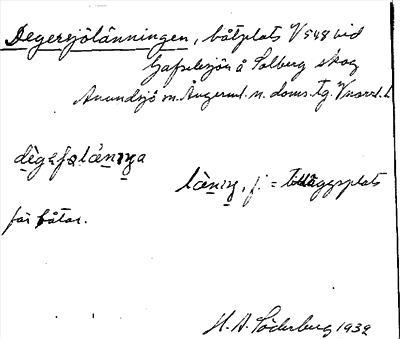 Degersjölänningen, båtplats V 548 vid
Gafselsjön å Solberg skog
Anundsjö sn. Ångerml. n. doms. tg. Vnorrl. l.
dègəʂəlànıŋa
lànıŋ, f. = tilläggsplats
för båtar.
H. A. Söderberg 1932